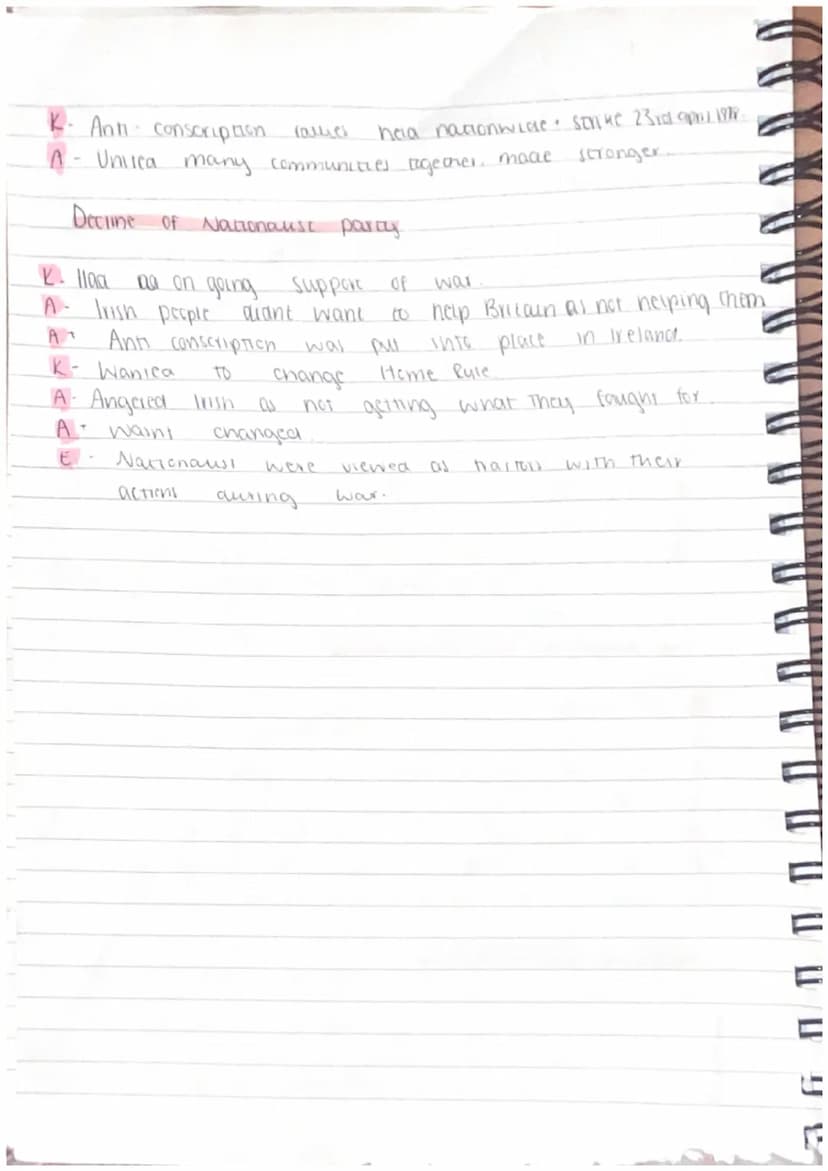 K - Anti-conscription rallies held nationwide + strike 23rd april 1918
A - United many communities together. made stronger.
Decline of Nationalist party
K - Had an on going support of war.
A - Irish people didnt want to help Britain as not helping them
A + Anti conscription was put into place in Ireland.
K - Wanted to change Home Rule
A - Angered Irish as not getting what they fought for.
A + wants changed
E - Nationalist were viewed as traitors with their
actions during war.